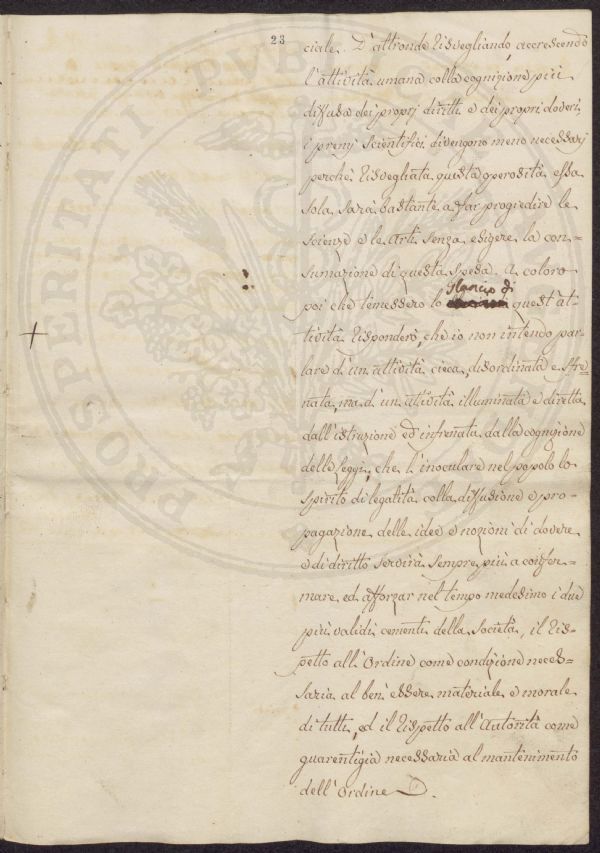 23
ciale. D'altronde risvegliando, accrescendo
l'attività umana colla cognizione più
diffusa dei proprj diritti e dei propri doveri,
i premj scientifici divengono meno necessarj
perchè risvegliata questa operosità essa
sola sarà bastante a far progredire le
scienze e le arti senza esigere la con=
sumazione di questa spesa. A coloro
poi che temessero lo slancio di quest'at-
tività risponderò, che io non intendo par-
lare d'un attività cieca, disordinata e sfre=
nata, ma d'un attività illuminata e diretta
dall'istruzione ed infrenata dalla cognizione
delle leggi, che l'inoculare nel popolo lo
spirito di legalità colla diffusione e pro-
pagazione delle idee e nozioni di dovere
e di diritto servirà sempre più a confer-
mare ed afforzar nel tempo medesimo i due
più validi cementi della Società, il ris-
petto all'Ordine come condizione neces=
saria al ben essere materiale e morale
di tutti, ed il rispetto all'Autorità come
guarentigia necessaria al mantenimento
dell'Ordine.
PROSPERITATI PUBLICAE